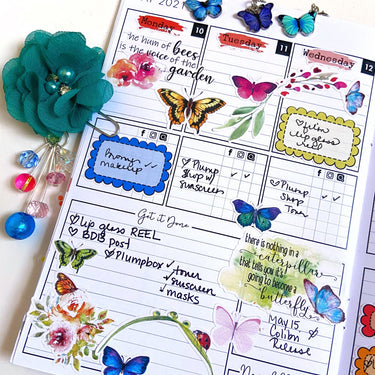 2021
Monday
10
Tuesday
11
Wednesday
12
the hum of bees
is the voice of the
garden
Promo
makeup
Plump
Shop w/
Sunscreen
film
lip gloss
reel
Plump
Shop
Toner
Got it Done
lip gloss REEL
BDB post
Plumpbox
toner
sunscreen
masks
there is nothing in a
caterpillar
that tells you it's
going to become a
butterfly
May 15
Colibri
Release